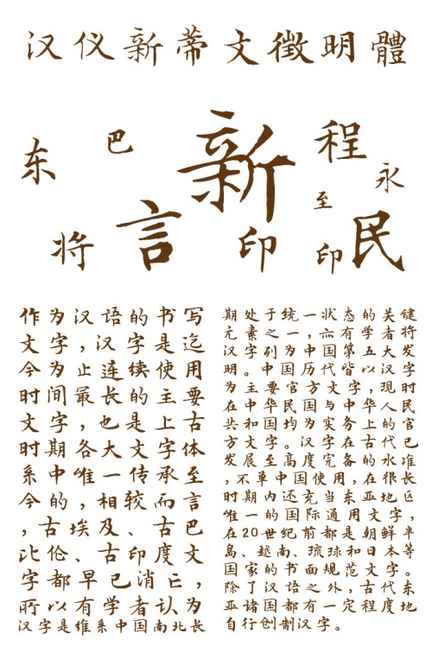 汉仪新蒂文徵明體
新
程
巴
东
永
至
言
民
将
印
印
作为汉语的书写
文字,汉字是迄
今为止连续使用
时间最长的主要
文字,也是上古
时期各大文字体
系中唯一传承至
今的,相较而言
,古埃及、古巴
比伦、古印度文
字都早已消亡,
所以有学者认为
汉字是维系中国南北长
期处于统一状态的关键
元素之一,亦有学者将
汉字列为中国第五大发
明。中国历代皆以汉字
为主要官方文字,现时
在中华民国与中华人民
共和国均为实务上的官
方文字。汉字在古代已
发展至高度完备的水准
,不单中国使用,在很长
时期内还充当东亚地区
唯一的国际通用文字,
在20世纪前都是朝鲜半
岛、越南、琉球和日本等
国家的书面规范文字。
除了汉语之外,古代东
亚诸国都有一定程度地
自行创制汉字。